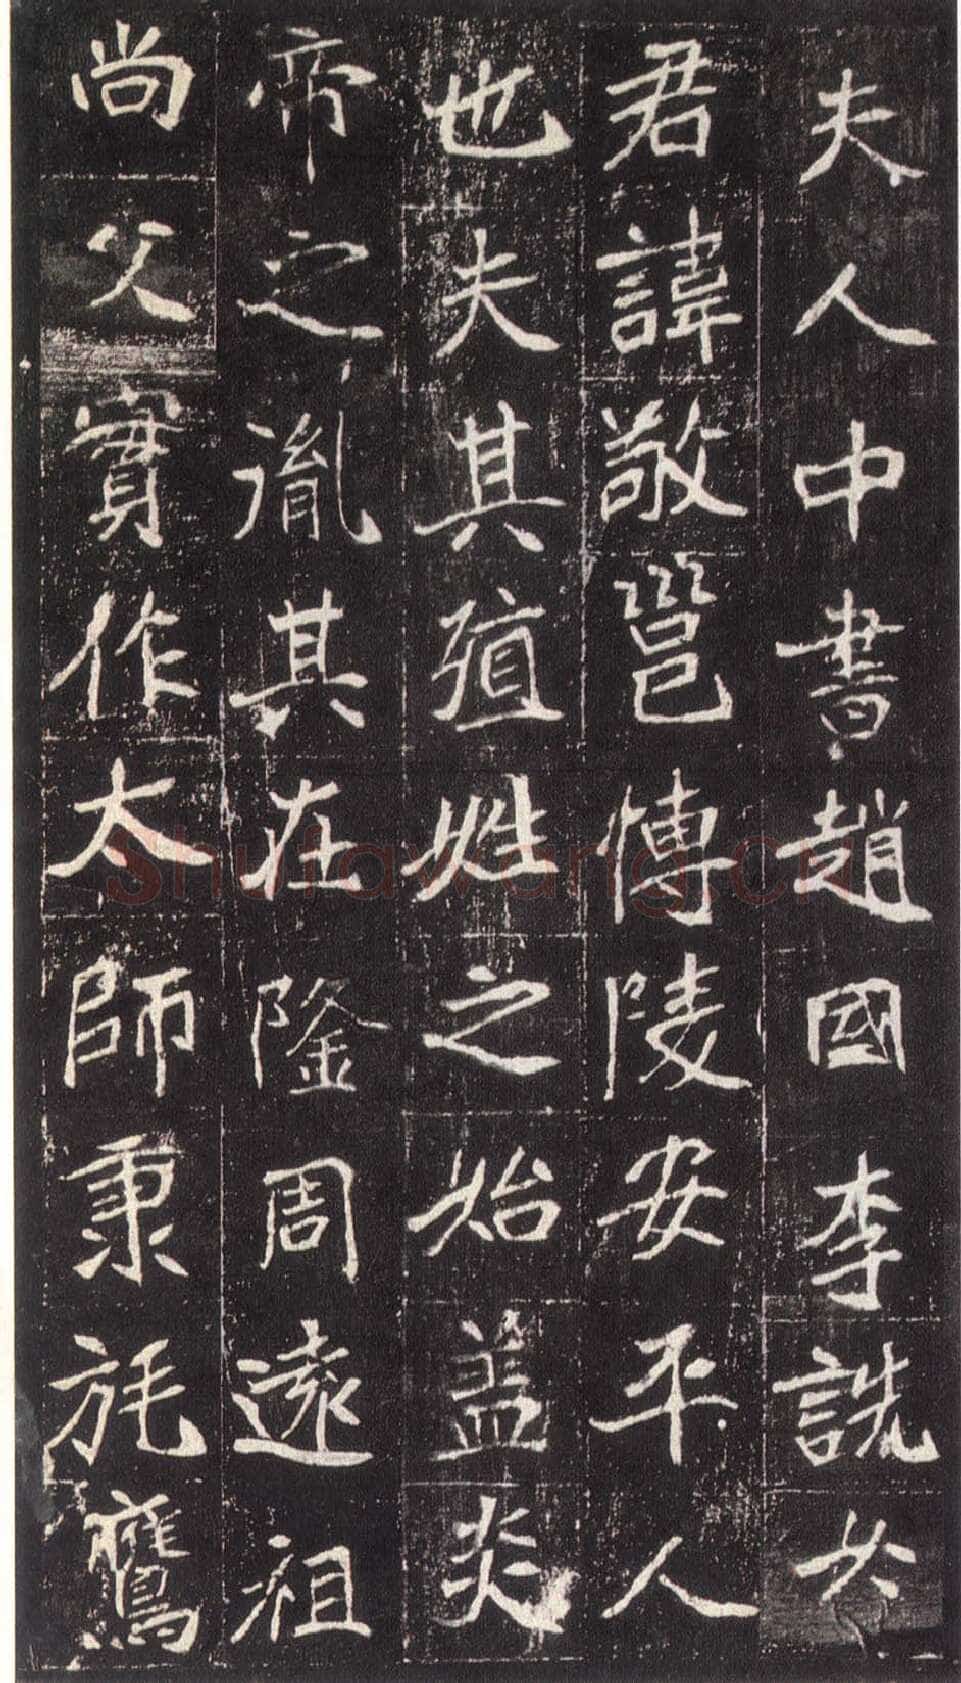 夫人中書趙國李詵父
君諱敬邕博陵安平人
也夫其殖姓之始盖炎
帝之胤其在隆周遠祖
尚父實作太師秉旄鷹
shufawang.cn